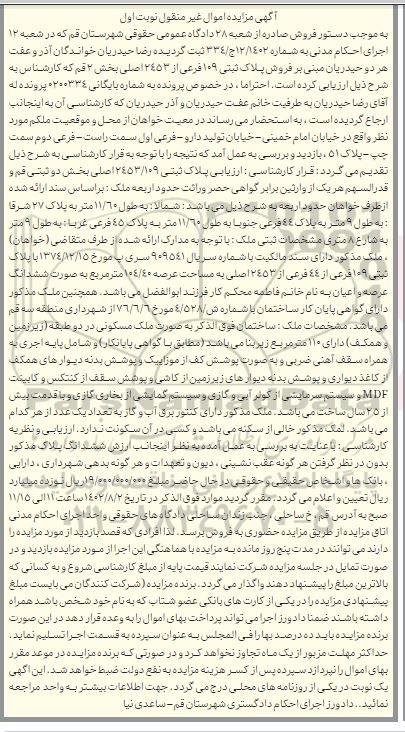 آگهی مزایده اموال غیر منقول نوبت اول
به موجب دستور فروش صادره از شعبه ۲۸ دادگاه عمومی حقوقی شهرستان قم که در شعبه ۱۲
اجرای احکام مدنی به شماره ۱۲/۱۴۰۲ج/۳۳۴ ثبت گردیده رضا حیدریان خواندگان آذر و عفت
هر دو حیدریان مبنی بر فروش پلاک ثبتی ۱۰۹ فرعی از ۲۴۵۳ اصلی بخش ۲ قم که کارشناس به
شرح ذیل ارزیابی کرده است. احتراما، در خصوص پرونده به شماره بایگانی ۰۲۰۰۳۳۴ پرونده له
آقای رضا حیدریان به طرفیت خانم عفت حیدریان و آذر حیدریان که کارشناسی آن به اینجانب
ارجاع گردیده است، به استحضار می رساند در معیت خواهان از محل و موقعیت ملکم مورد
نظر واقع در خیابان امام خمینی – خیابان تولید دارو – فرعی اول سمت راست – فرعی دوم سمت
چپ – پلاک ۵۱، بازدید و بررسی به عمل آمد که نتیجه را با توجه به قرار کارشناسی به شرح ذیل
تقدیم می گردد: قرار کارشناسی: ارزیابی پلاک ثبتی ۲۴۵۳/۱۰۹ اصلی بخش دو ثبتی قم و
قدرالسهم هر یک از وارثین برابر گواهی حصر وراثت حدود اربعه ملک: بر اساس سند ارائه شده
از طرف خواهان حدود اربعه به شرح ذیل می باشد: شمالا: به طول ۱۱/۶۰ متر به پلاک ۲۷ شرقا
: به طول ۹ متر به پلاک ۴۴ فرعی جنوبا به طول ۱۱/۶۰ متر به پلاک ۴۵ فرعی غربا: به طول ۹ متر
به شارع ۸ متری مشخصات ثبتی ملک: با توجه به مدارک ارائه شده از طرف متقاضی (خواهان)
، ملک مذکور دارای سند مالکیت با شماره سریال ۹۰۹۵۴۱ سری ب مورخ ۱۳۷۴/۱۲/۱۵ با پلاک
ثبتی ۱۰۹ فرعی از ۴۴ فرعی از ۲۴۵۳ اصلی به مساحت عرصه ۱۰۴/۴۰ مترمربع به صورت ششدانگ
عرصه و اعیان به نام خانم فاطمه محکم کار فرزند ابوالفضل می باشد. همچنین ملک مذکور
دارای گواهی پایان کار ساختمان با شماره ش/۴/۵۲۸ مورخ ۷۶/۶/۶ از شهرداری منطقه سه قم
می باشد. مشخصات ملک: ساختمان فوق الذکر به صورت ملک مسکونی در دو طبقه (زیرزمین
و همکف) دارای ۱۱۰ مترمربع زیربنا می باشد (مطابق با گواهی پایانکار) و شامل پایه اجری به
همراه سقف آهنی ضربی و به صورت پوشش کف از موزاییک و پوشش بدنه دیوار های همکف
از کاغذ دیواری و پوشش بدنه دیوار های زیرزمین از کاشی و پوشش سقف از کنتکس و کابینت
MDF و سیستم سرمایشی از کولر آبی و گازی و سیستم گمایشی از بخاری گازی و با قدمت بیش
از ۲۵ سال ساخت می باشد. ملک مذکور دارای کنتور برق آب و گاز به تعداد یک عدد از هر کدام
می باشد. لمک مذکور خالی از سکنه می باشد و کسی در آن سکونت ندارد. ارزیابی و نظریه
کارشناسی: با عنایت به بررسی به عمل آمده به نظر اینجانب ارزش ششدانگ پلاک مذکور
بدون در نظر گرفتن هر گونه عقب نشینی، دیون و تعهدات و هر گونه بدهی شهرداری، دارایی
، بانک ها و اشخاص حقیقی و حقوقی در حال حاضر مبلغ ۱۹/۰۰۰/۰۰۰/۰۰۰ ریال نوزده میلیارد
ریال تعیین و اعلام می گردد. مقرر گردید موارد فوق الذکر در تاریخ ۱۴۰۲/۸/۲ ساعت ۱۱ الی ۱۱/۱۵
صبح به آدرس قم، خ ساحلی، جنب زندان ساحلی دادگاه های حقوقی واحد اجرای احکام مدنی
اتاق مزایده از طریق مزایده حضوری به فروش برسد. لذا افرادی که قصد بازدید از مورد مزایده را
دارند می توانند در مدت پنج روز مانده به مزایده با هماهنگی این اجرا از مورد مزایده بازدید و در
صورت تمایل در جلسه مزایده شرکت نمایند قیمت پایه از مبلغ کارشناسی شروع و به کسانی که
بالاترین مبلغ را پیشنهاد دهند واگذار می گردد. برنده مزایده (شرکت کنندگان می بایست مبلغ
پیشنهادی مزایده را در یکی از کارت های بانکی عضو شتاب که به نام خود شخص باشد همراه
داشته باشند ضمنا دادورز اجرا می تواند پرداخت بهای اموال را به وعده قرار دهد در این صورت
برنده مزایده باید ده درصد بها را فی المجلس به عنوان سپرده به قسمت اجرا تسلیم نماید.
حداکثر مهلت مزبور از یک ماه تجاوز نخواهد کرد و در صورتی که برنده مزایده در موعد مقرر
بهای اموال را نپردازد سپرده پس از کسر هزینه مزایده به نفع دولت ضبط خواهد شد. این اگهی
یک نوبت در یکی از روزنامه های محلی درج می گردد. جهت اطلاعات بیشتر به واحد مراجعه
نمائید.. دادورز اجرای احکام دادگستری شهرستان قم – ساعدی نیا